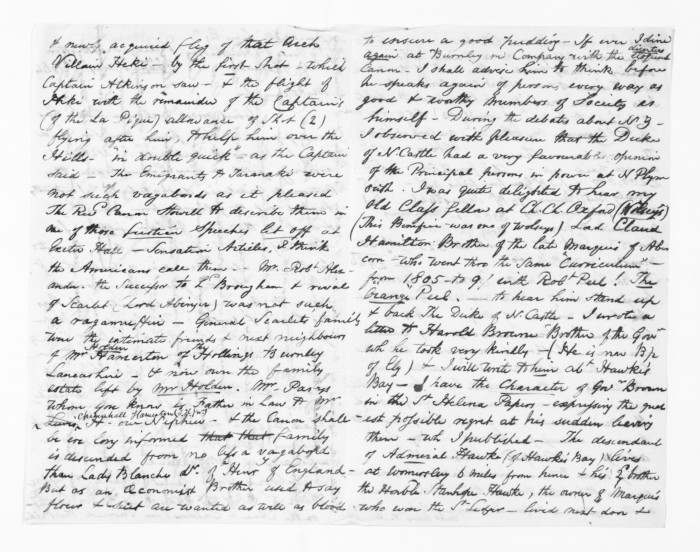 & newly acquired flag of that Arch
Villain Heke - by the first Shot - which
Captain Atkinson saw - & the flight of
Heke with the remainder of the Captain's
(of the La Pique) allowance of Shot (2)
flying after him, to help him over the
Hills - "in double quick" - as the Captain
said - The Emigrants to Taranaki were
not such vagabonds as it pleased
The Revd Canon Stowell to describe them in
one of those fustian Speeches let off at
Exeter Hall - Sensation Articles, I think
the Americans call them - Mr. Robt Alex-
ander the Successor to L Brougham & rival
of Scarlet (Lord Abinger) was not such
a ragamuffin - General Scarlet's family
were the intimate friends & next neighbours
of Mr Hamerton of Hollings Burnley
Holden
Lancashire - & now own the family
estate left by Mr Holden. Mrs
whom you know is Father in Law to Mr
- our Nephew - & the Canon shall
be more informed that that family
is descended from no less a vagabond
than Lady Blanche Dr. of Henry of England -
But as an Oconomist Brother used to say
flour & suet are wanted as well as blood
to insure a good pudding - If ever I dine
again at Burnley in Company with the eloquent
Canon - I shall advise him to think before
he speaks again of persons every way as
good & worthy members of Society as
himself - During the debates about N.Z -
I observed with pleasure that the Duke
of N.Castle had a very favourable opinion
of the Principal persons in power at N Plym
outh. I was quite delighted to hear my
Old Class fellow at Ch. Ch. Oxford (Wolsey's)
(This Bumper was one of Wolseys) Lord Claud
Hamilton Brother of the late Marquis of Aber
corn - who went thro the Same Curriculum -
from 1805 - to 9/ with Robt Peel. "The
Orange" Peel. - to hear him stand up
& back The Duke of N. Castle - I wrote a
letter to Harold Browne Brother of the Govr
wh he took very kindly - (He is now Bp
of Ely) & I will write to him abt Hawke's
Bay - I have the Character of Govr Brown
in the St Helena Papers - expressing the great
est possible regret at his sudden leaving
them - wh I published - The descendant
of Admiral Hawke (of Hawke's Bay) lives
at Womersley 6 miles from hence & his brother
the Honble Stanhope Hawke, the owner of Marquis
who won the St Leger - lived next door to